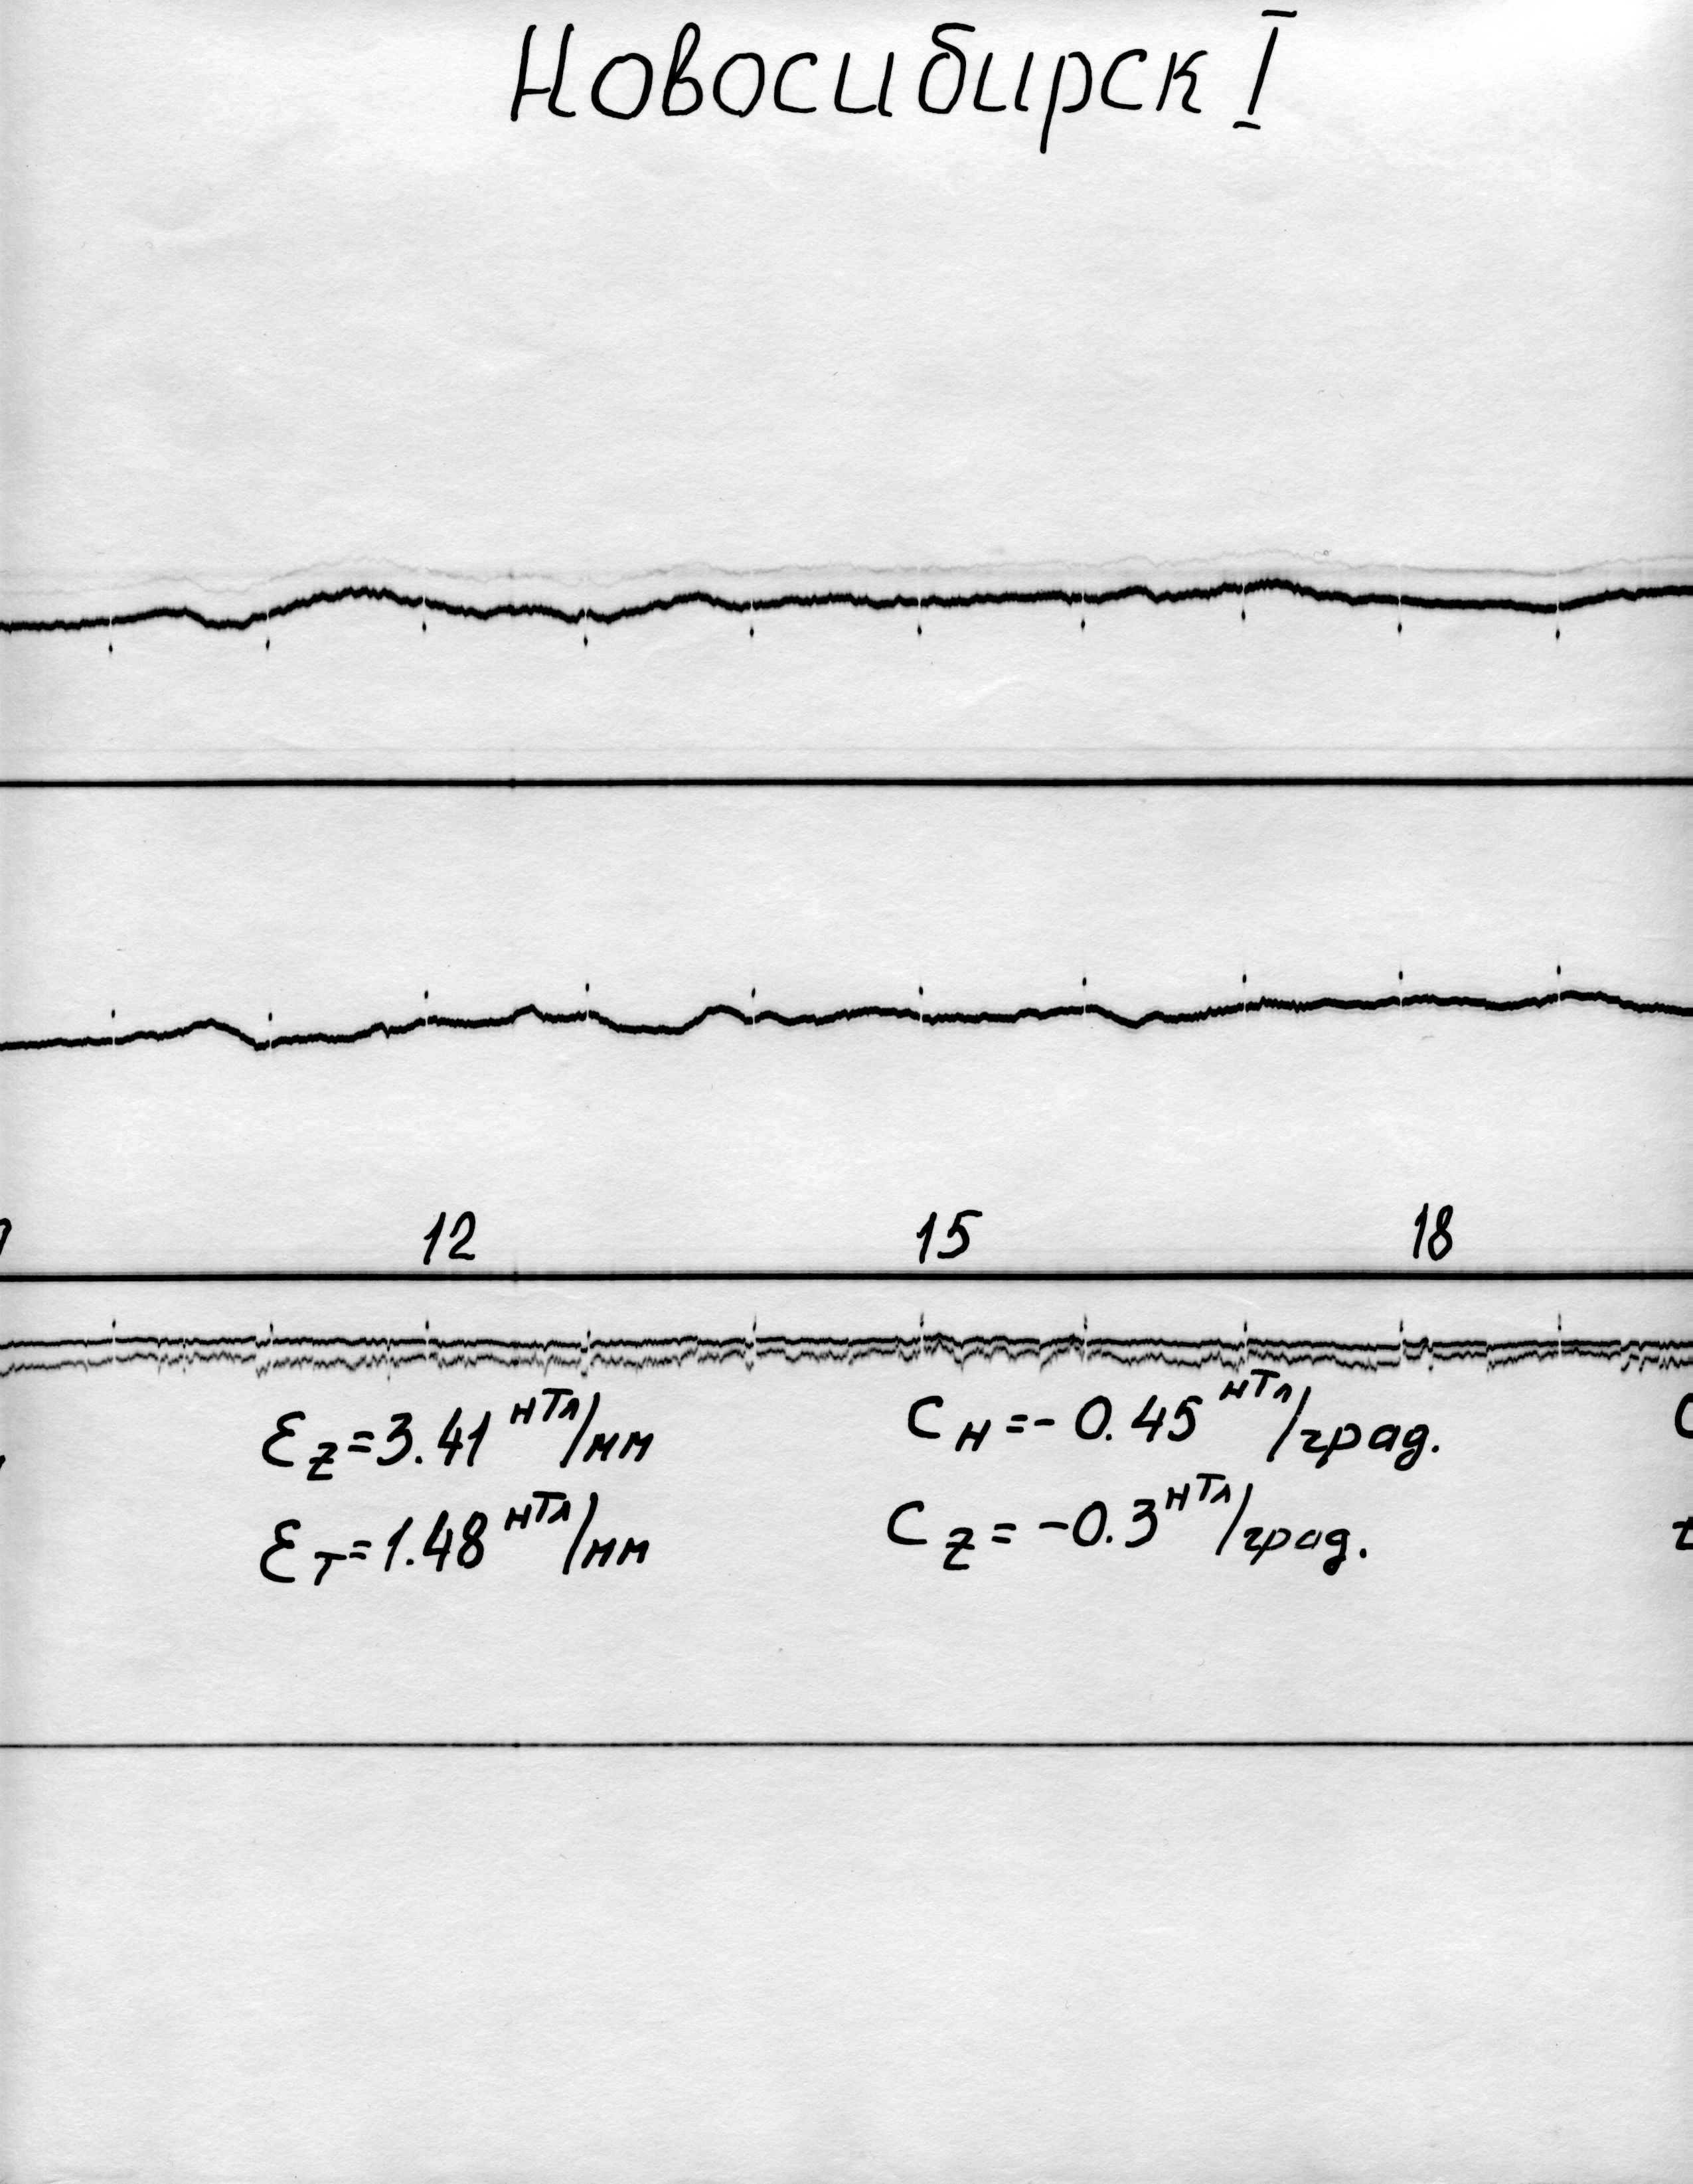 Новосибирск I
12 15 18
Ɛz=3.41 нТл/мм Cн=-0.45 нТл/град.
Ɛт=1.48 нТл/мм Cz=-0.3 нТл/град.